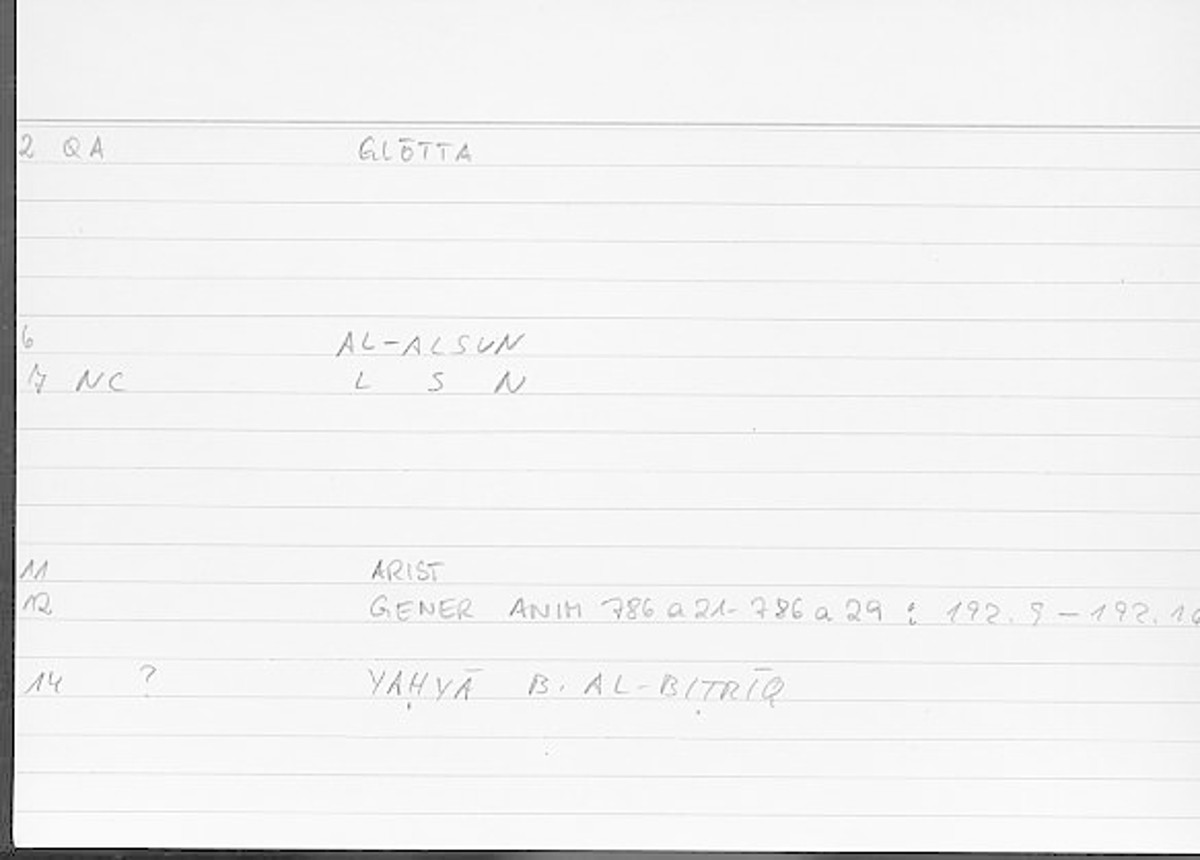 2 QA GLŌTTA
6 AL-ALSUN
7 NC L S N
11 ARIST
12 GENER ANIM 786 a 21- 786 a 29 : 192. 9 – 192.
14 ? YAḤYĀ B. AL-BIṬRĪQ